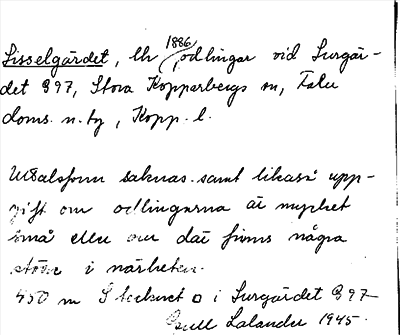 Sisselgärdet, lh 1886, odlingar vid Surgär-
det 897, Stora Kopparbergs sn, Falu
doms. n. tg, Kopp. l.
Uttalsform saknas samt likaså upp-
gift om odlingarna är mycket
små eller om där finns några
i närheten.
450 m S tecknet o i Surgärdet 897
Lalander 1945.